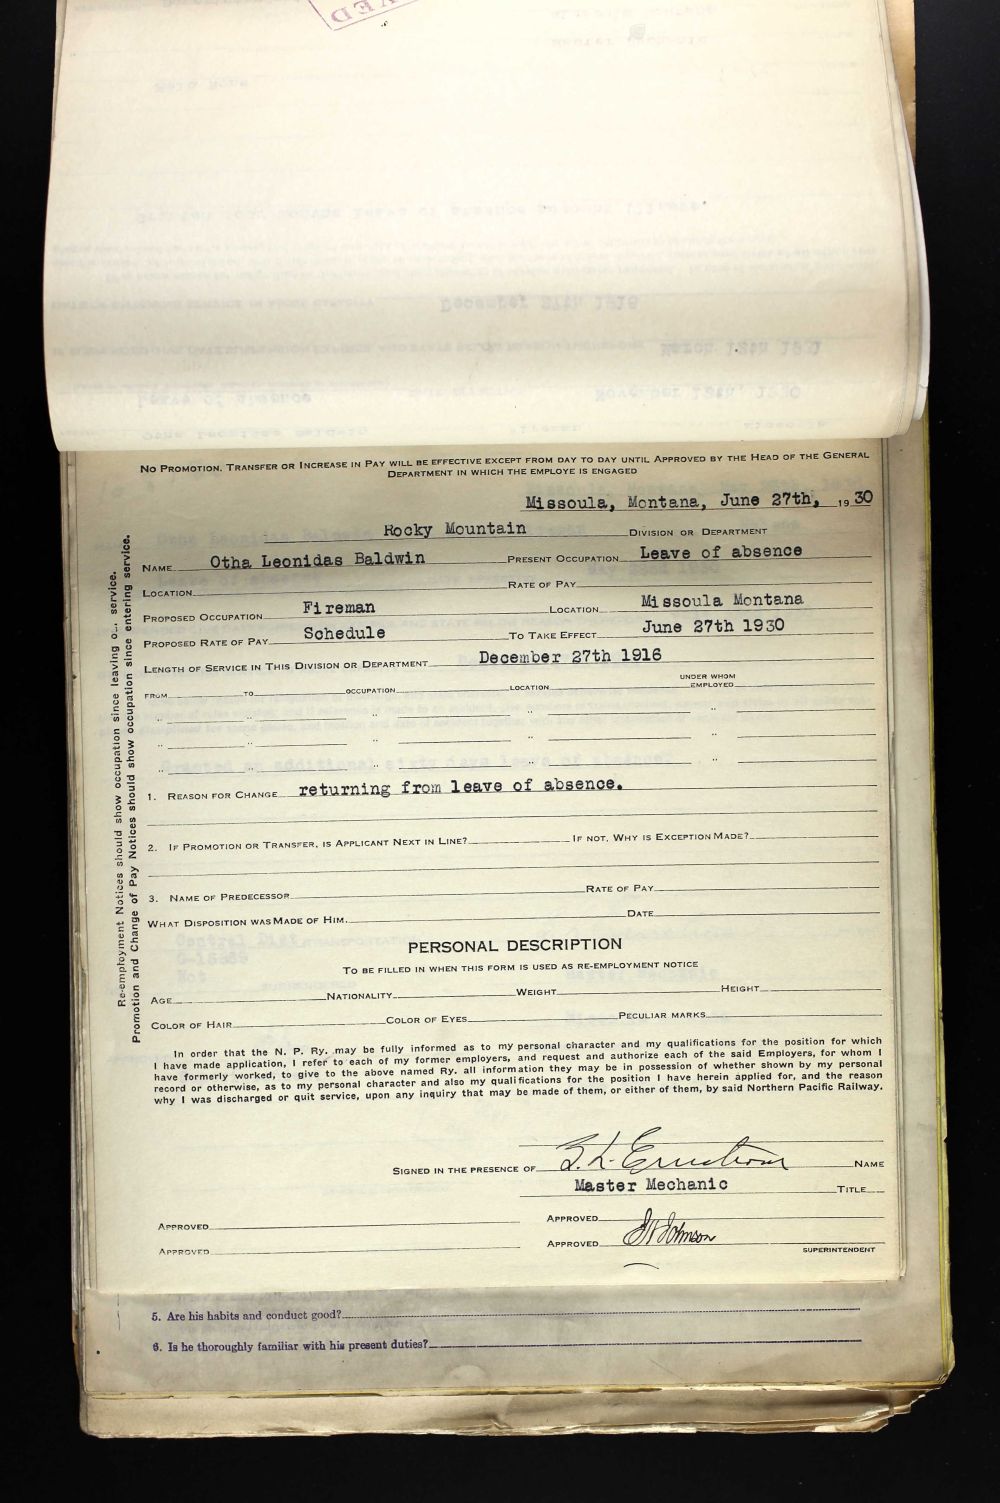 No Promotion, Transfer or Increase in Pay will be effective except from day to day until Approved by the Head of the General
Department in which the employe is engaged
Missoula, Montana, June 27th, 1930
Rocky Mountain Division or Department
Name Otha Leonidas Baldwin Present Occupation Leave of absence
Location Rate of Pay
Proposed Occupation Fireman Location Missoula Montana
Proposed Rate of Pay Schedule To Take Effect June 27th 1930
Length of Service in This Division or Department December 27th 1916
From to occupation location under whom employed
1. Reason for Change returning from leave of absence.
2. If Promotion or Transfer, is Applicant Next in Line? If not, Why is Exception Made?
3. Name of Predecessor Rate of Pay
What Disposition was Made of Him. Date
PERSONAL DESCRIPTION
To be filled in when this form is used as re-employment notice
Age Nationality Weight Height
Color of Hair Color of Eyes Peculiar marks
In order that the N. P. Ry. may be fully informed as to my personal character and my qualifications for the position for which
I have made application, I refer to each of my former employers, and request and authorize each of the said Employers, for whom I
have formerly worked, to give to the above named Ry. all information they may be in possession of whether shown by my personal
record or otherwise, as to my personal character and also my qualifications for the position I have herein applied for, and the reason
why I was discharged or quit service, upon any inquiry that may be made of them, or either of them, by said Northern Pacific Railway.
Signed in the presence of Name
Master Mechanic Title
Approved Approved
Approved Approved Johnson
Superintendent
Re-employment Notices should show occupation since leaving service.
Promotion and Change of Pay Notices should show occupation since entering service.
5. Are his habits and conduct good?
6. Is he thoroughly familiar with his present duties?